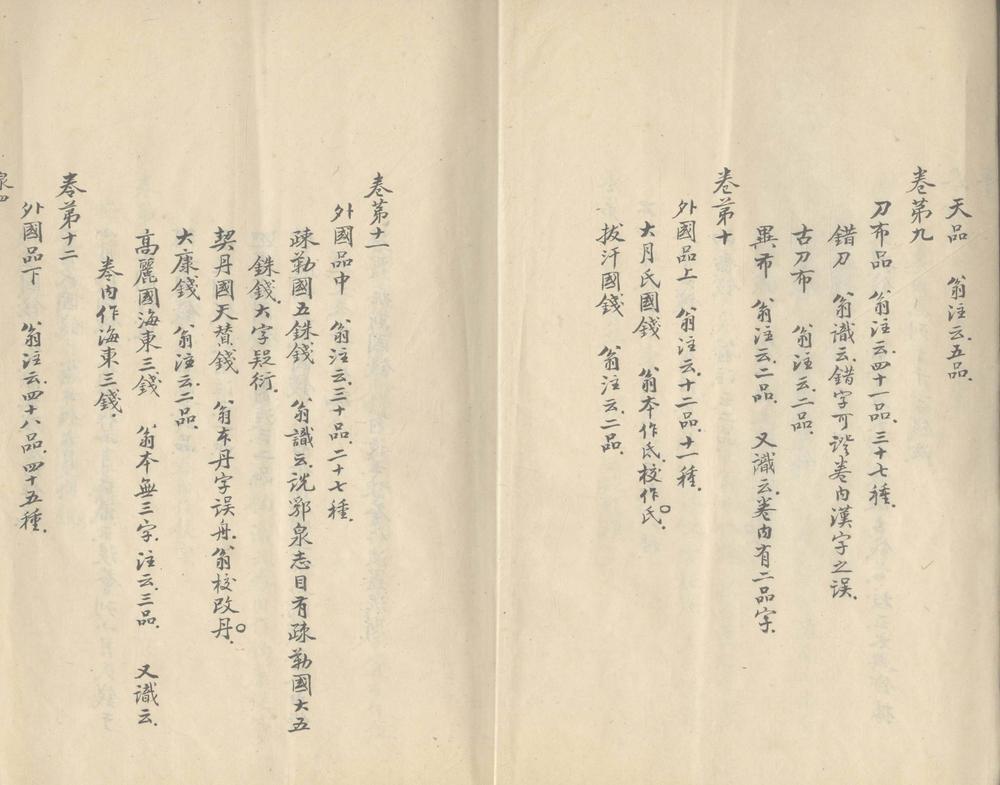 天品　翁注云.五品.
卷第九
刀布品　翁注云.四十一品.三十七種.
錯刀　翁識云.錯字可證卷內漢字之誤.
古刀布　翁注云.二品.
異布　翁注云.二品.　又識云.卷內有二品字.
卷第十
外國品上　翁注云.十二品.十一種.
大月氏國錢　翁本作氐.校作氏。
拔汗國錢　翁注云.二品.
卷第十一
外國品中　翁注云.三十品.二十七種.
疎勒國五銖錢　翁識云.說郛泉志目有疎勒國大五
銖錢.大字疑衍.
契丹國天贊錢　翁本丹字誤舟.翁校改丹。
大康錢　翁注云.二品.
高麗國海東三錢　翁本無三字.注云.三品.　又識云.
卷內作海東三錢.
卷第十二
外國品下　翁注云.四十八品.四十五種.